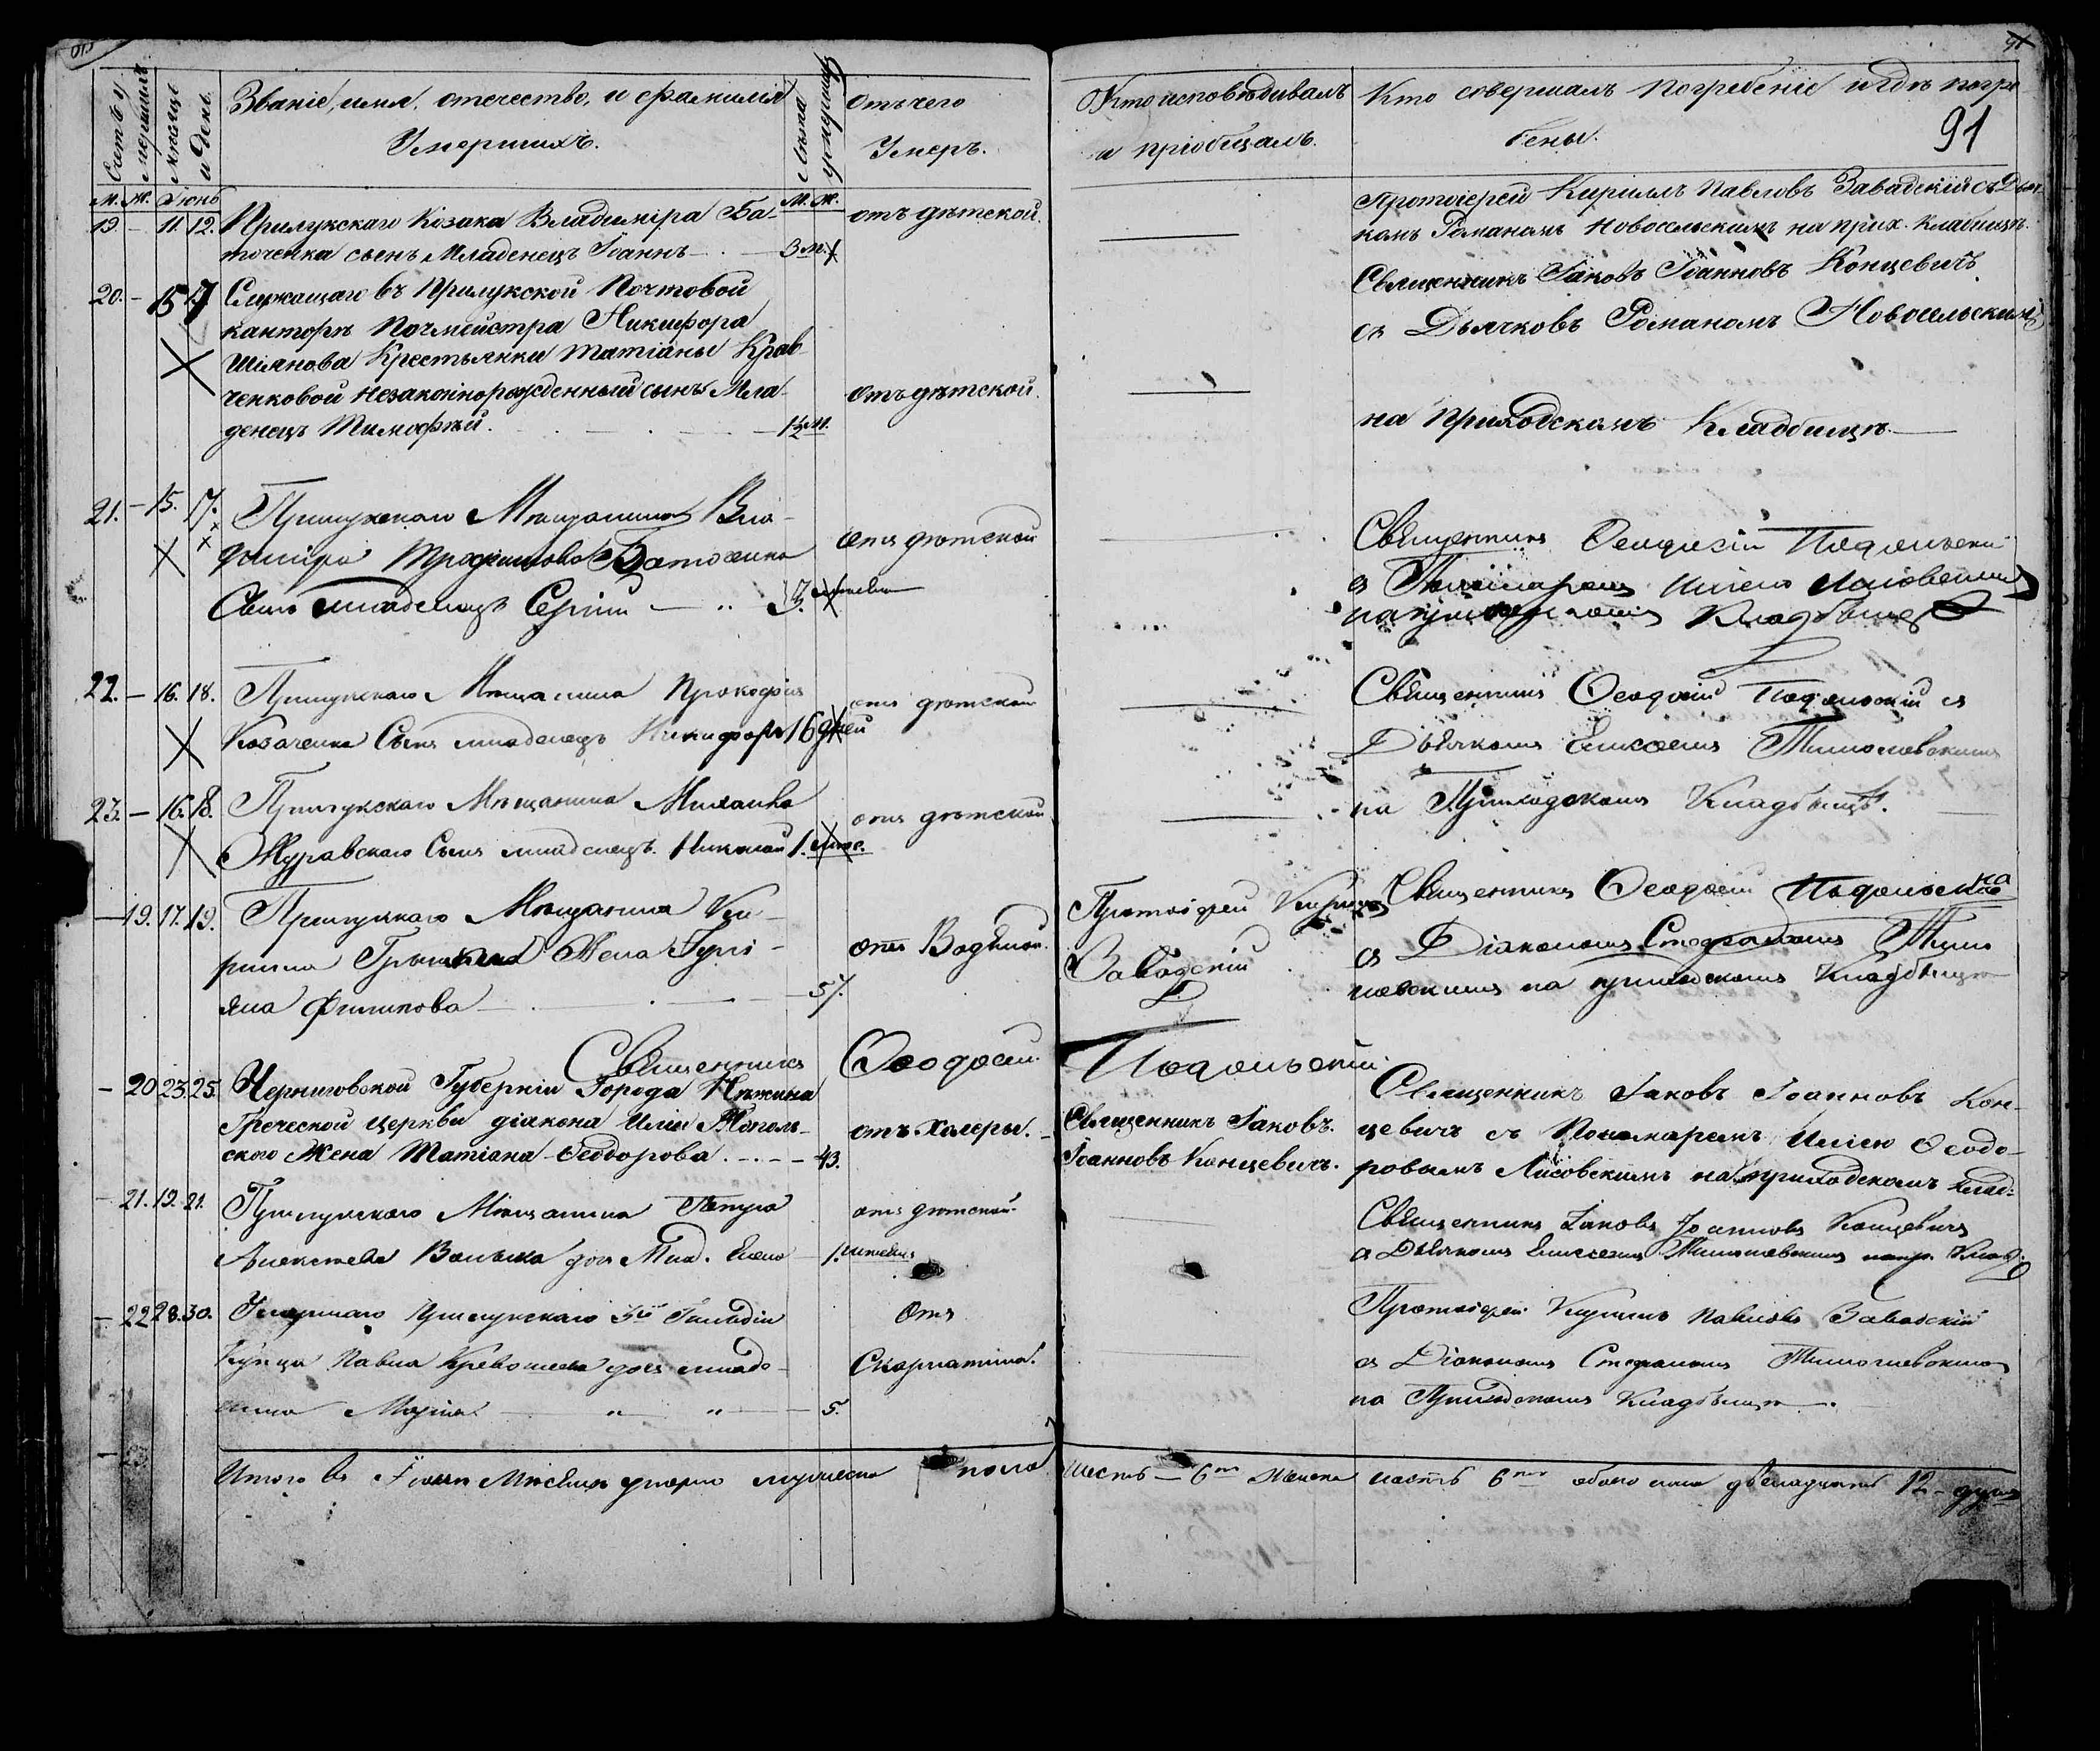 91
Счетъ у-
мершихъ
Мѣсяцъ
и день.
Званіе, имя, отечество, и фамилія
Умершихъ.
Лѣта
умершихъ
Отъ чего
Умеръ.
Кто исповѣдывалъ
и пріобщалъ.
Кто совершалъ погребеніе и гдѣ погре
бены.
М. Ж. Іюнь
М. Ж.
19. – 11. 12. Прилукскаго Козака Владиміра Ба-
точенка сынъ Младенецъ Іоаннъ 3 м.
отъ дѣтской.
Протоіерей Кириллъ Павловъ Завадскій съ Дьяч-
комъ Романомъ Новосельскимъ на прих. кладбищѣ.
20. – 15 17 Служащаго въ Прилукской Почтовой
канторѣ Почмейстра Никифора
Шіянова Крестьянки Татіаны Крав-
ченковой незаконнорожденный сынъ Мла-
денецъ Тимофѣй. 1½ м.
отъ дѣтской.
Священникъ Іаковъ Іоанновъ Концевичъ
съ Дьячковъ Романомъ Новосельскимъ
на Приходскомъ Кладбищѣ
21. – 15. 17. Прилукскаго Мѣщанина Вла-
диміра Трофимова Баточенка
Сынъ младенецъ Сергій 3.
отъ дѣтской
Священникъ Ѳеодосій Подольскій
съ Пономаремъ Иліею Лисовскимъ
на приходскомъ Кладбищѣ
22. – 16. 18. Прилукскаго Мѣщанина Прокофія
Козаченка Сынъ младенецъ Никифоръ 16 дней
отъ дѣтской
Священникъ Ѳеодосій Подольскій съ
Дьячкомъ Елисеемъ Тимошевскимъ
на Приходскомъ Кладбищѣ.
23. – 16. 18. Прилукскаго Мѣщанина Михаила
Журавскаго Сынъ младенецъ Николай 1. мѣс.
отъ дѣтской
– 19. 17. 19. Прилукскаго Мѣщанина Ки-
рилла Жена Іулі-
яна Филипова 57.
отъ Водяной.
Протоіерей Кириллъ
Завадскій
Священникъ Ѳеодосій Подольскій
съ Діакономъ Стефаномъ Тимо
шевскимъ на приходскомъ Кладбищѣ
Священникъ Ѳеодосій Подольскій
– 20 23. 25. Черниговской Губерніи Города Нѣжина
Греческой церкви діакона Иліи
ского Жена Татіана Ѳеодорова 43.
отъ Холеры.
Священникъ Іаковъ
Іоанновъ Концевичъ.
Священникъ Іаковъ Іоанновъ Кон-
цевичъ съ Пономаремъ Иліею Ѳеодо-
ровымъ Лисовскимъ на приходскомъ клад:
– 21. 19. 21. Прилукскаго Мѣщанина Петра
Алексѣева дочь Млад. Елена 1.
отъ дѣтской
Священникъ Іаковъ Іоанновъ Концевичъ
съ Дьячкомъ Елисеемъ Тимошевскимъ на пр. Клад.
– 22 28. 30. Умершаго Прилукскаго 3й Гильдіи
Купца Павла дочь младе-
Марія 5.
Отъ
Скарлатина.
Протоіерей Кириллъ Павловъ Завадскій
съ Діакономъ Стефаномъ Тимошевскимъ
на Приходскомъ Кладбищѣ
Итого въ Іюнѣ Мѣсяцѣ умерло мужеска пола шесть – 6 женска шесть 6 обоего пола двенадцать 12 – душъ